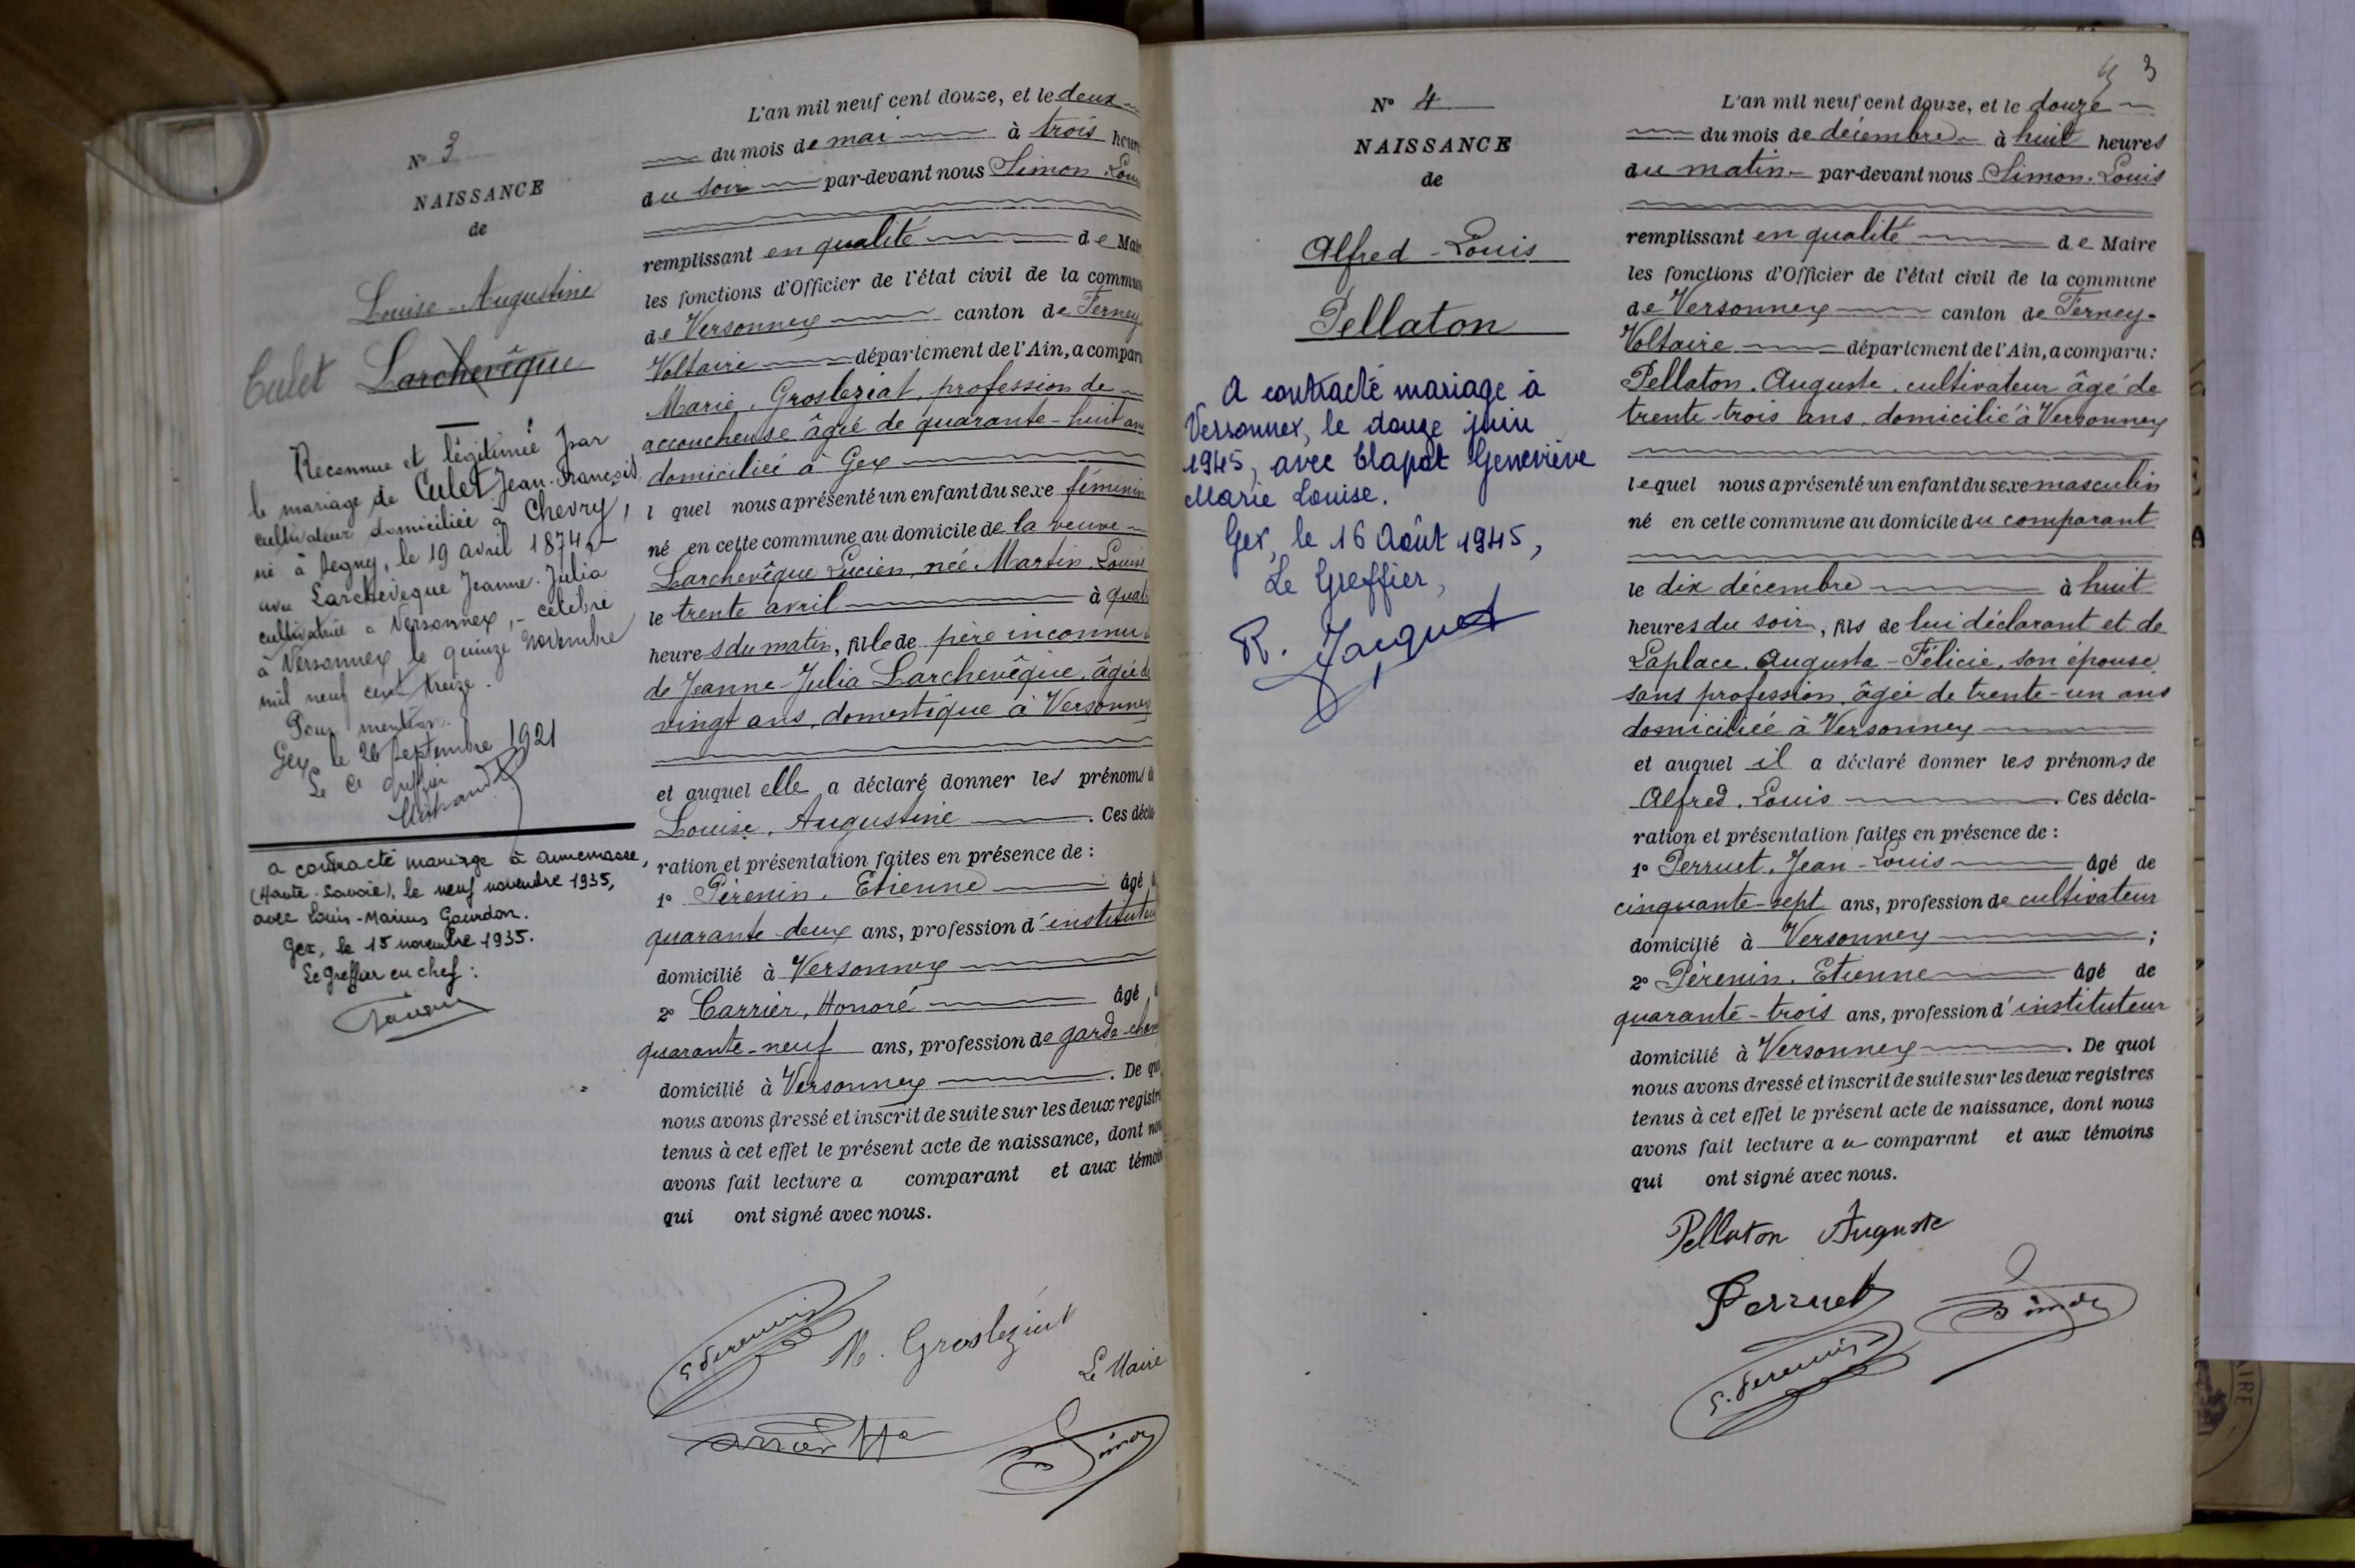 N° 3
NAISSANCE
de
Louise-Augustine
Culet Larchevêque
Reconnue et légitimée par
le mariage de Culet Jean-François
cultivateur domicilié à Chevry,
né à Segny, le 19 avril 1874
avec Larchevêque Jeanne-Julia
cultivatrice à Versonnex, célébré
à Versonnex le quinze novembre
mil neuf cent treize.
Pour mention.
Gex le 26 septembre 1921
Le Greffier
a contracté mariage à Annemasse,
(Haute-Savoie), le neuf novembre 1935,
avec Louis-Marius Gourdon.
Gex, le 15 novembre 1935.
Le Greffier en chef :
L'an mil neuf cent douze, et le deux
du mois de mai à trois heure
du soir par-devant nous Simon Lou
remplissant en qualité de Mai
les fonctions d'Officier de l'état civil de la commun
de Versonnex canton de Ferney
Voltaire département de l'Ain, a comparu
Marie, Grosleziat, profession de
accoucheuse âgée de quarante-huit ans
domiciliée à Gex
l quel nous a présenté un enfant du sexe féminin
né en cette commune au domicile de la veuve
Larchevêque Lucien, née Martin Louise
le trente avril à quat
heures du matin, fille de père inconnu
de Jeanne-Julia Larchevêque, âgée de
vingt ans, domestique à Versonnex
et auquel elle a déclaré donner les prénoms d
Louise, Augustine . Ces décla
ration et présentation faites en présence de :
1° Pérenin, Etienne âgé d
quarante-deux ans, profession d'instituteu
domicilié à Versonnex
2° Carrier, Honoré âgé d
quarante-neuf ans, profession de garde-cham
domicilié à Versonnex . De quo
nous avons dressé et inscrit de suite sur les deux registre
tenus à cet effet le présent acte de naissance, dont nou
avons fait lecture a comparant et aux témoin
qui ont signé avec nous.
M. Grosleziat
Le Maire
Simon
3
N° 4
NAISSANCE
de
Alfred-Louis
Pellaton
A contracté mariage à
Versonnex, le douze juin
1945, avec Clapot Geneviève
Marie Louise.
Gex, le 16 Août 1945,
Le Greffier,
R. Jacquet
L'an mil neuf cent douze, et le douze
du mois de décembre à huit heures
du matin par-devant nous Simon Louis
remplissant en qualité de Maire
les fonctions d'Officier de l'état civil de la commune
de Versonnex canton de Ferney-
Voltaire département de l'Ain, a comparu :
Pellaton, Auguste, cultivateur âgé de
trente-trois ans, domicilié à Versonnex
lequel nous a présenté un enfant du sexe masculin
né en cette commune au domicile du comparant
le dix décembre à huit
heures du soir, fils de lui déclarant et de
Laplace, Augusta-Félicie, son épouse
sans profession, âgée de trente-un ans
domiciliée à Versonnex
et auquel il a déclaré donner les prénoms de
Alfred, Louis . Ces décla-
ration et présentation faites en présence de :
1° Perruet, Jean-Louis âgé de
cinquante-sept ans, profession de cultivateur
domicilié à Versonnex ;
2° Pérenin, Etienne âgé de
quarante-trois ans, profession d'instituteur
domicilié à Versonnex . De quoi
nous avons dressé et inscrit de suite sur les deux registres
tenus à cet effet le présent acte de naissance, dont nous
avons fait lecture a u comparant et aux témoins
qui ont signé avec nous.
Pellaton Auguste
Perruet
Simon
E. Perenin